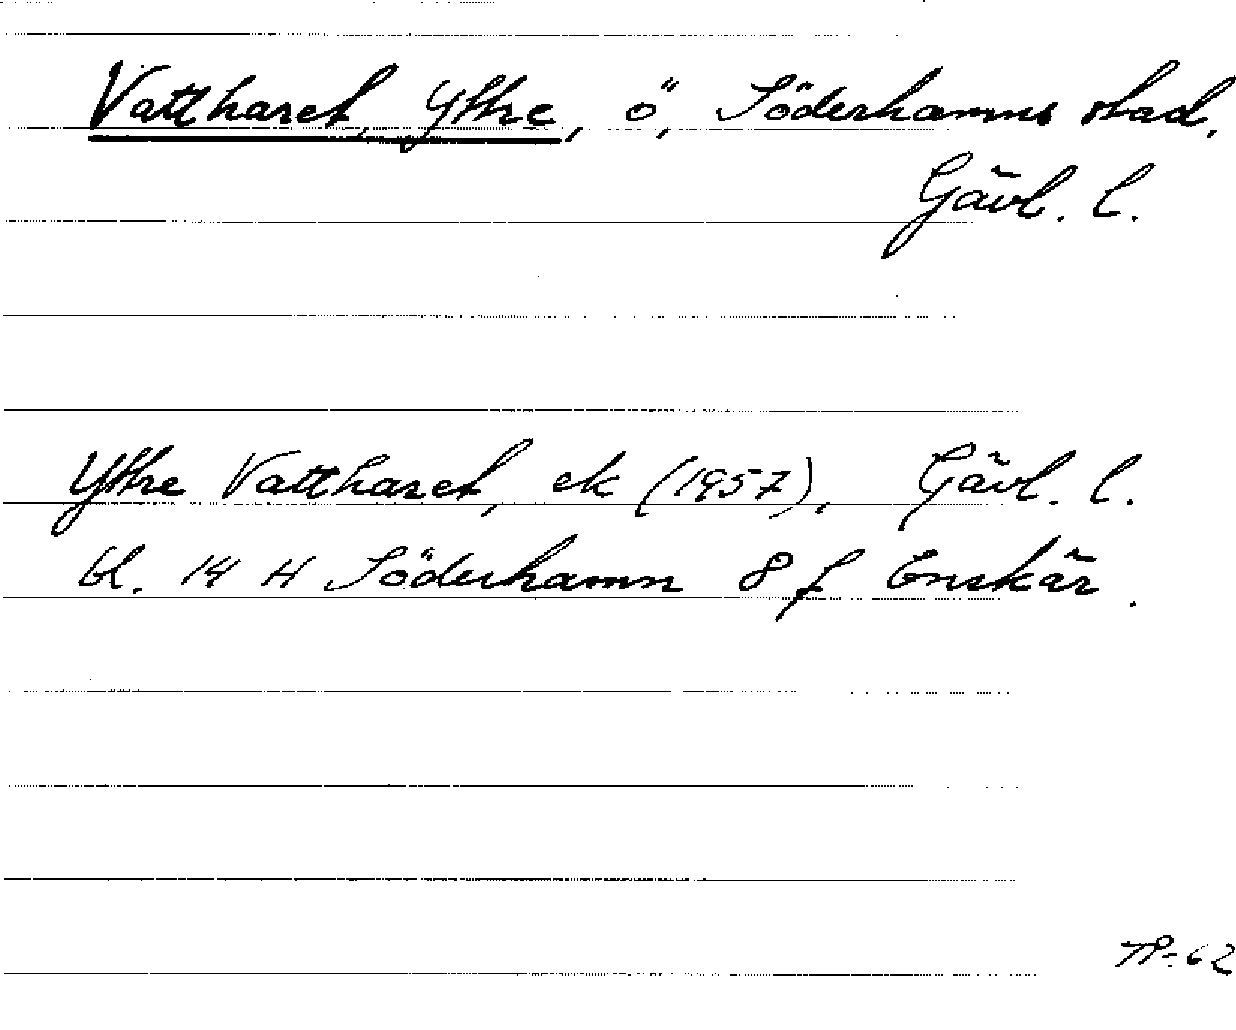 Vattharet, Yttre, ö, Söderhamns stad,
Gävl. l.
Yttre Vattharet, ek (1957), Gävl. l.
bl. 14 H Söderhamn 8 f Enskär.
TP-62